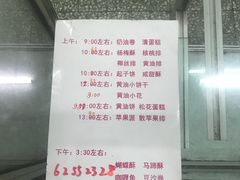 上午： 9:00左右： 奶油卷 清蛋糕
10:00左右： 杨梅酥 核桃排
椰丝排 黄油排
10:00左右： 起子饼 咸甜酥
12:00左右： 黄油小饼干
9:00 黄油小花
9:00左右： 黄油饼 松花蛋糕
13:00左右： 苹果派 散苹果排
下午： 3:30左右：
62552328
蝴蝶酥 马蹄酥
咖喱角 豆沙卷